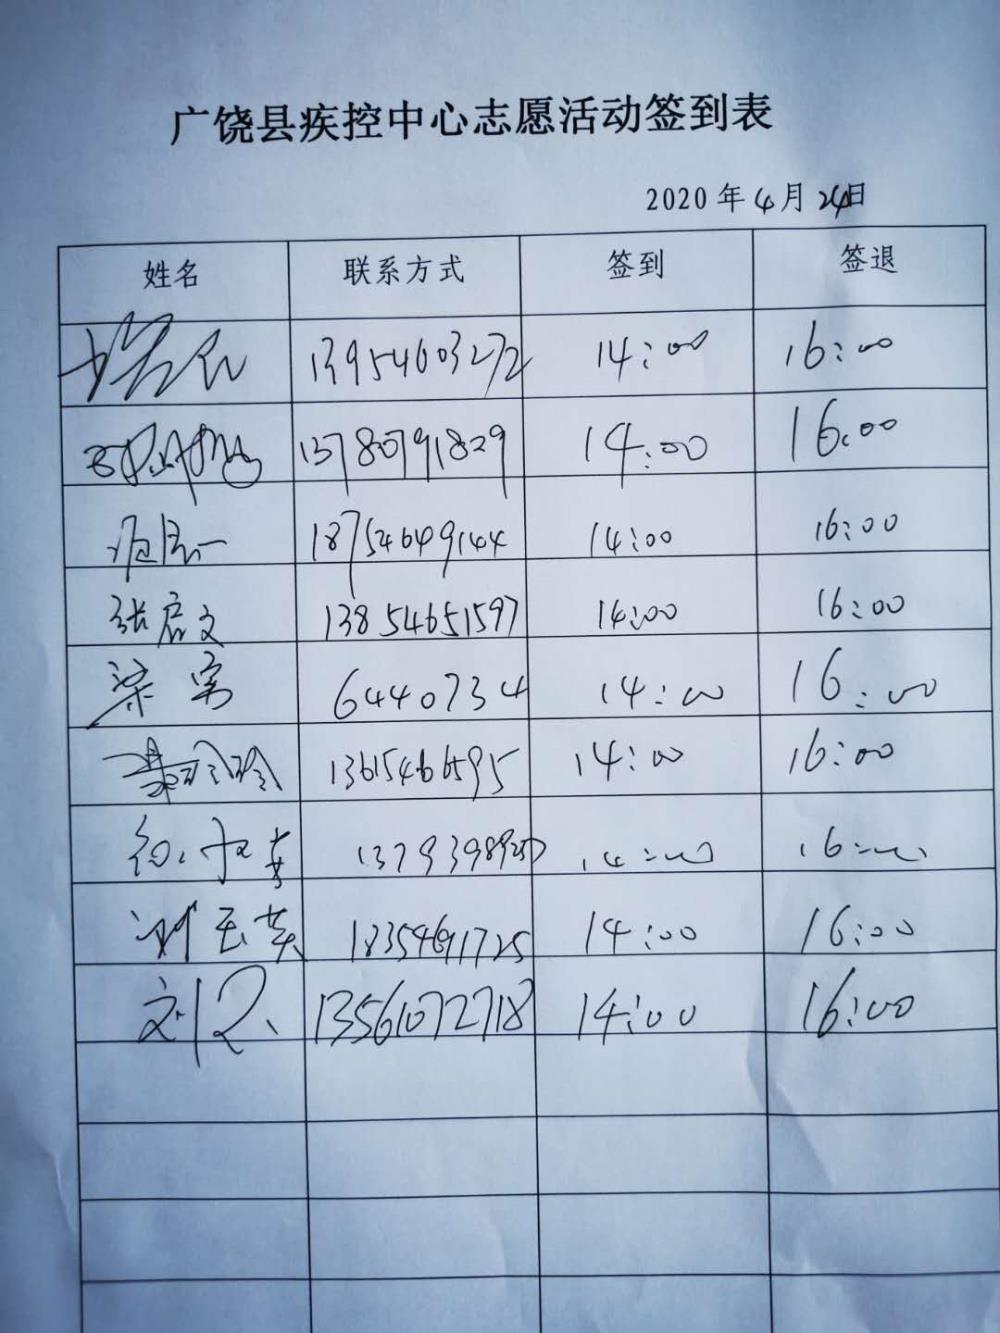 广饶县疾控中心志愿活动签到表
2020年4月24日
姓名 联系方式 签到 签退
13954603272 14:00 16:00
13780791829 14:00 16:00
18754649144 14:00 16:00
张启文 13854651597 14:00 16:00
梁宁 6440734 14:00 16:00
13615466595 14:00 16:00
14:00 16:00
刘玉英 18354691725 14:00 16:00
13561072718 14:00 16:00